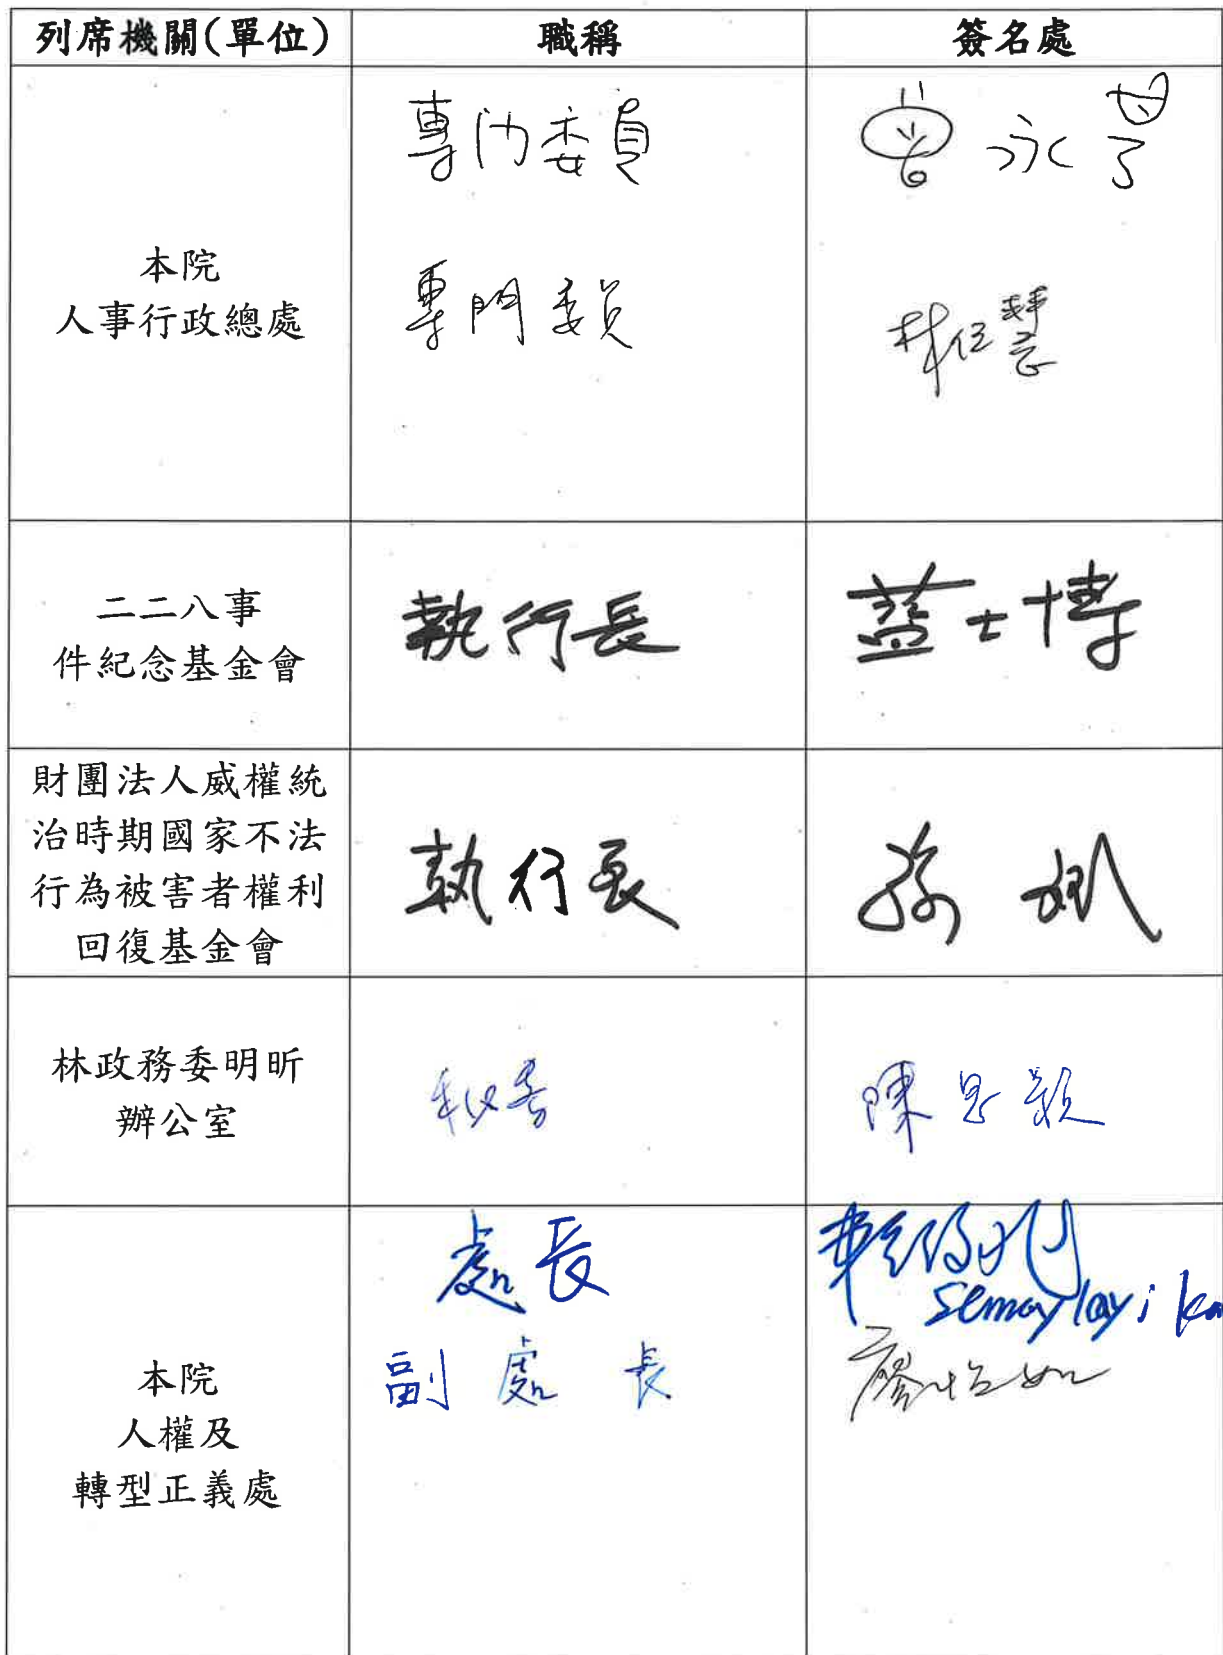 列席機關(單位) 職稱 簽名處
本院
人事行政總處
專門委員 曾永
專門委員 林
二二八事
件紀念基金會
執行長 藍士博
財團法人威權統
治時期國家不法
行為被害者權利
回復基金會
執行長 孫斌
林政務委明昕
辦公室
秘書 陳思穎
本院
人權及
轉型正義處
處長 賴俊兆
semaylay i ka
副處長 廖怡如